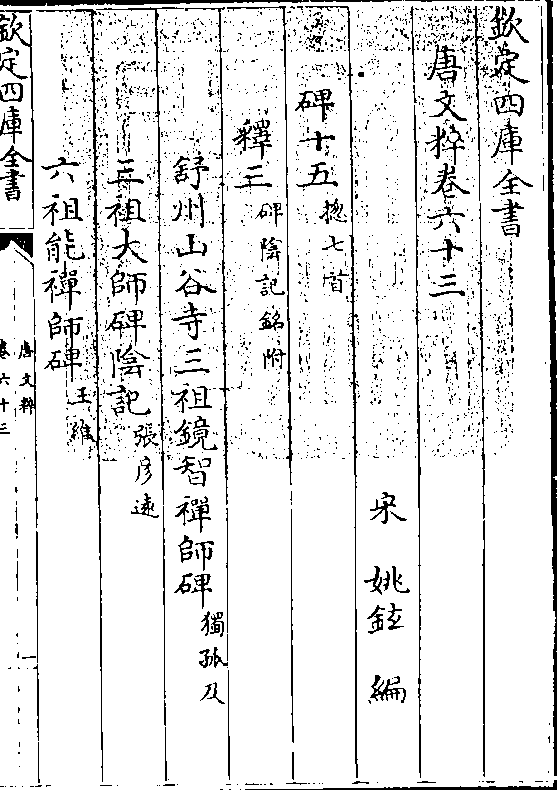 欽定四庫全書
唐文粹卷六十三
宋 姚鉉 編
碑十五 摠七首
釋三 碑隂記銘附
舒州山谷寺三祖鏡智禪師碑 獨孤及
三祖大師碑隂記 張彦遠
六祖能禪師碑 王維
欽定四庫全書
唐文粹
卷六十三
一